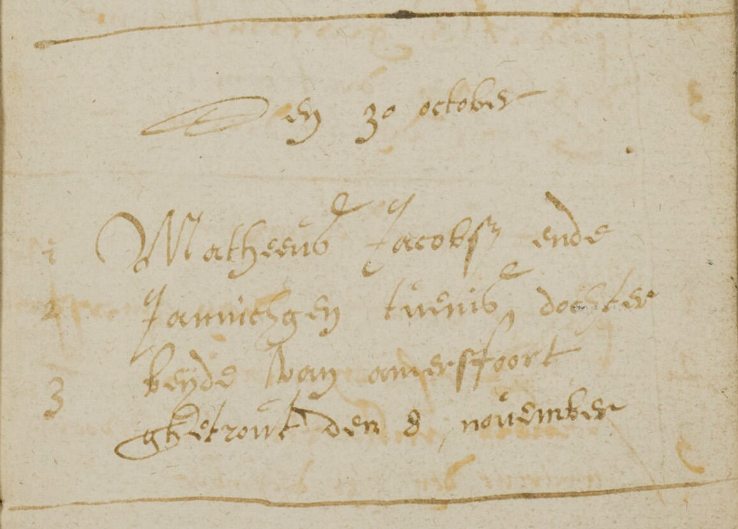 Den 30 october
1 Matheeus Jacobsz ende
2 Jannichgen tuenis dochter
3 beyde van amersfoort
ghetrout den 8 november